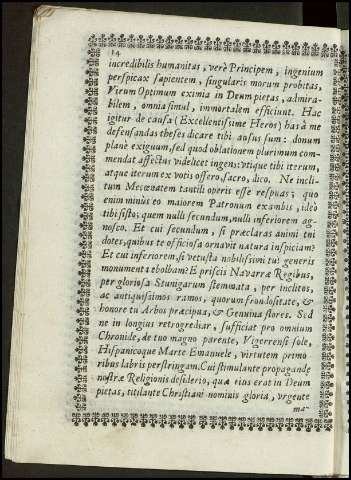 14
incredibilis humanitas, verè Principem, ingenium
perspicax sapientem, singularis morum probitas,
Virum Optimum eximia in Deum pietas, admira-
bilem, omnia simul, immortalem efficiunt. Hac
igitur de causa (Excellentissime Heros) has à me
defensandas theses dicare tibi ausus sum: donum
planè exiguum, sed quod oblationem plurimum com-
mendat affectus videlicet ingens: vtique tibi iterum,
atque iterum ex votis offero, sacro, dico. Ne incli-
tum Mecœnatem tantili operis esse respuas; quo
enim minùs eo maiorem Patronum exambis, ideò
tibi sisto; quem nulli secundum, nulli inferiorem ag-
nosco. Et cui secundum, si præclaras animi tui
dotes, quibus te officiosa ornavit natura inspiciam?
Et cui inferiorem, si vetusta nobilissimi tui generis
monumenta ebolbam? E priscis Navarræ Regibus,
per gloriosa Stunigarum stemmata, per inclitos,
ac antiquissimos ramos, quorum frondositate, &
honore tu Arbos præcipua, & Genuina flores. Sed
ne in longius retrogrediar, sufficiat pro omnium
Chronide, de tuo magno parente, Vigerrensi sole,
Hispanicoque Marte Emanuele, virtutem primo
ribus labris perstringam. Cui stimulante propagandę
nostræ Religionis desiderio, quæ eius erat in Deum
pietas, titilante Christiani nominis gloria, vrgente
ma-